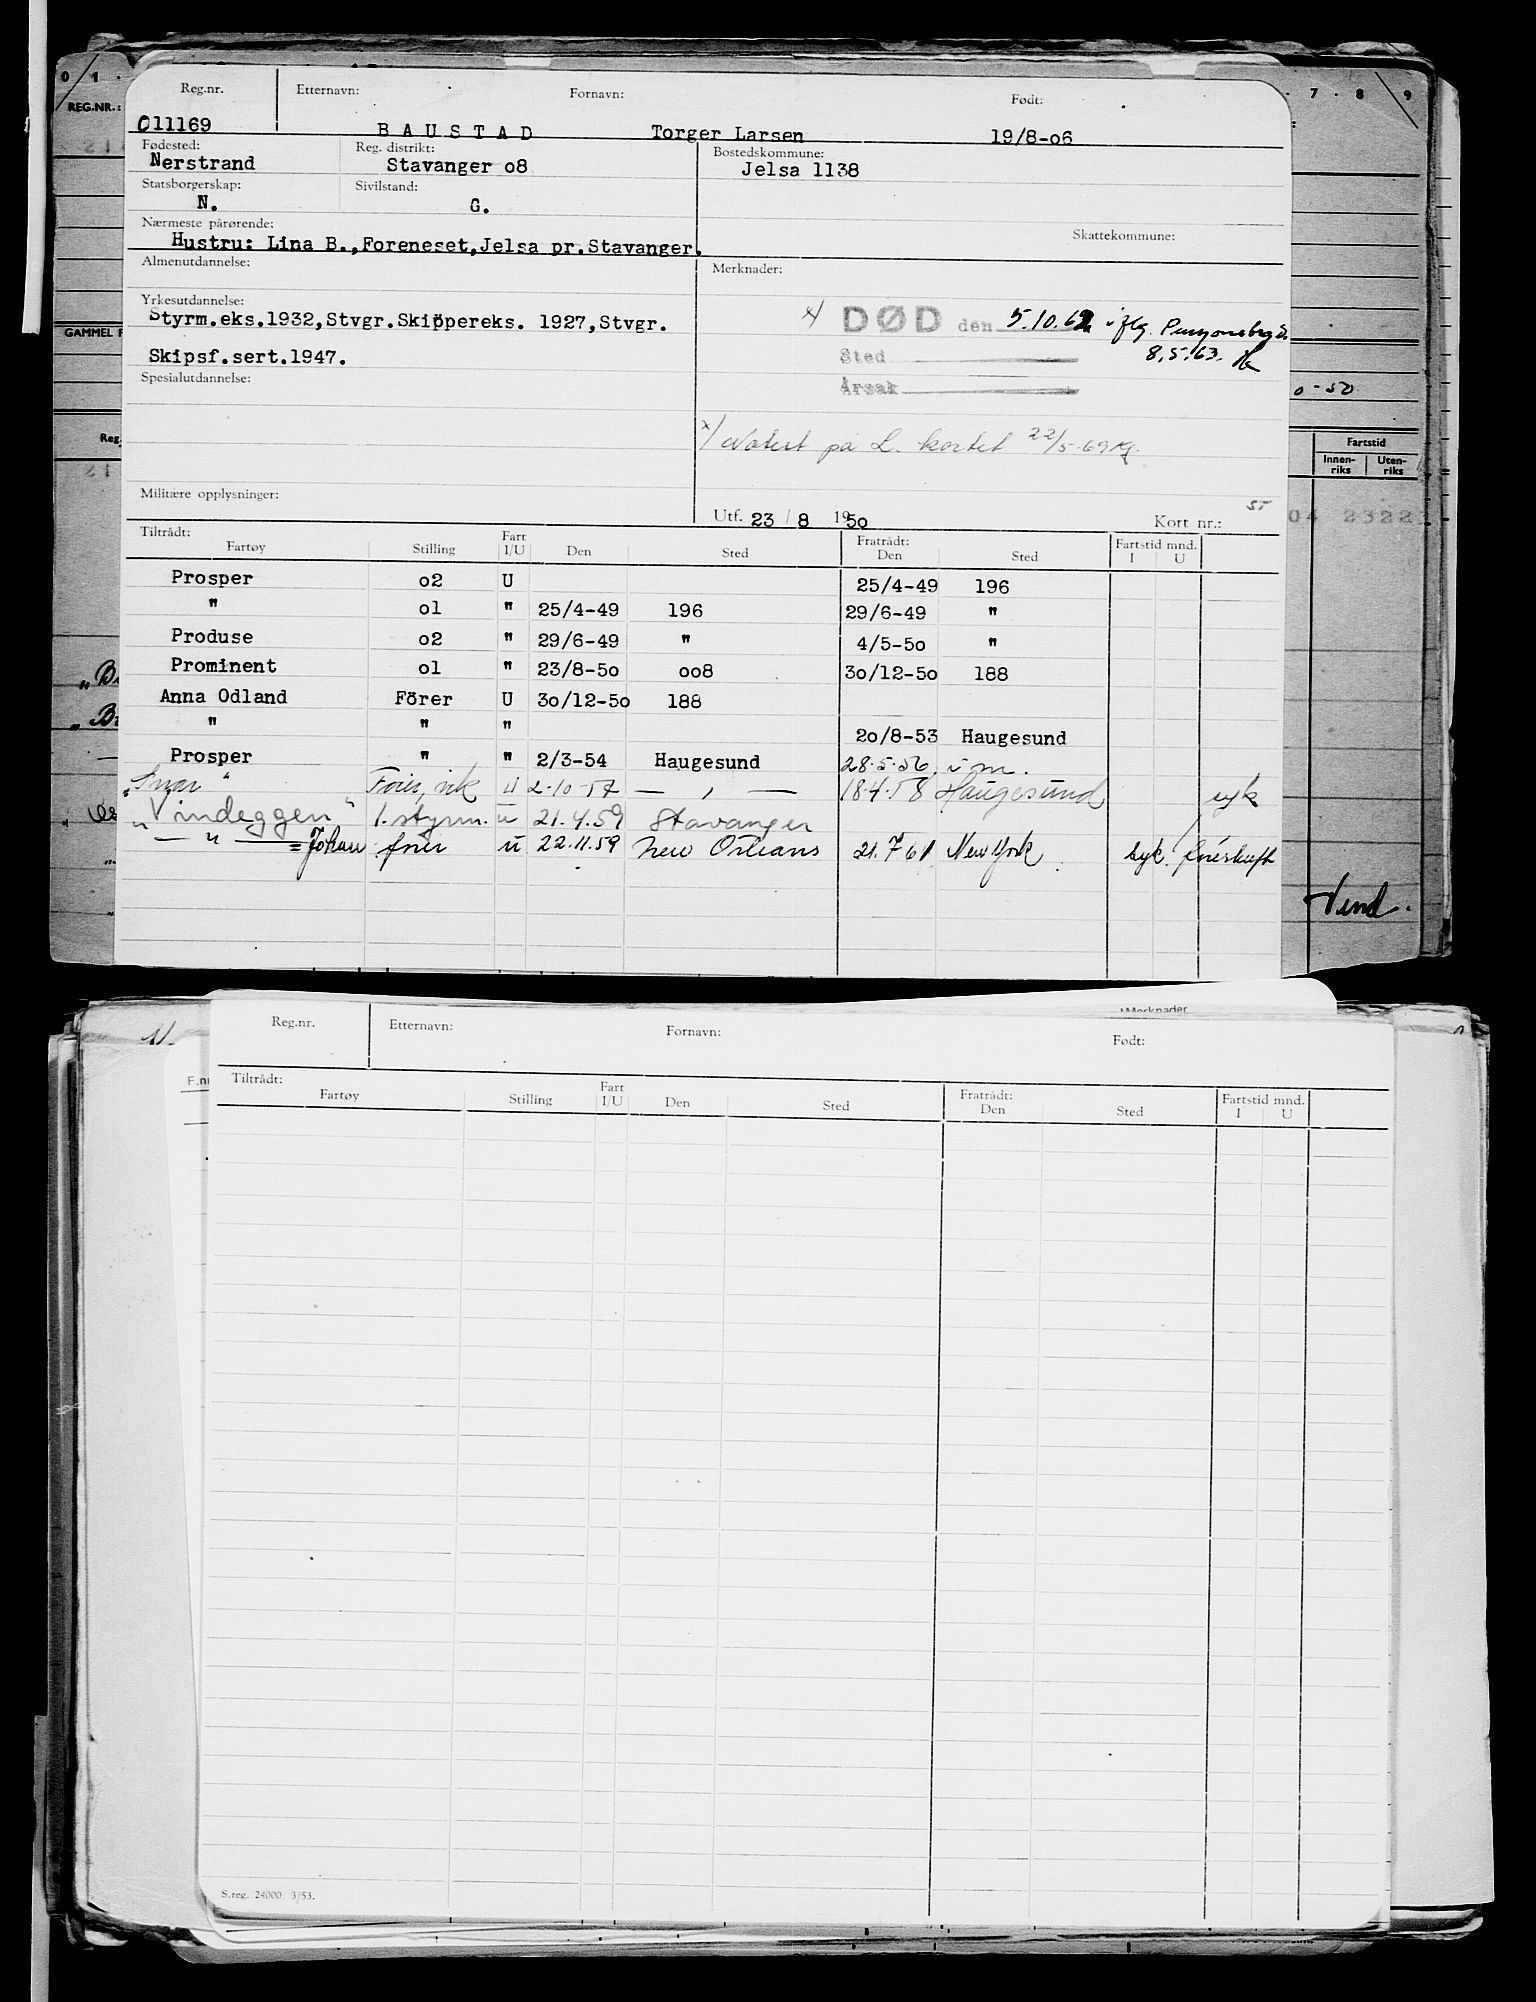 0 1 · · 7 · 8 9
REG.NR.:
Reg.nr. Etternavn: Fornavn: Født:
011169 BAUSTAD Torger Larsen 19/8-o6
Fødested: Reg. distrikt: Bostedskommune:
Nerstrand Stavanger o8 Jelsa 1138
Statsborgerskap: Sivilstand:
N. G.
Nærmeste pårørende: Skattekommune:
Hustru: Lina B.,Foreneset,Jelsa pr.Stavanger.
Almenutdannelse: Merknader:
Yrkesutdannelse:
Styrm.eks.1932,Stvgr.Skippereks. 1927,Stvgr.
x/ DØD den 5.10.62 iflg.
Skipsf.sert.1947.
Sted 8.5.63.
Spesialutdannelse: Årsak
x/ Notert på L. kortet 22/5-69
Militære opplysninger:
Utf. 23 / 8 1950 Kort nr.:
Tiltrådt: Fratrådt:
Fartøy Stilling Fart I/U Den Sted Den Sted Fartstid mnd. I U
Prosper o2 U 25/4-49 196
" o1 " 25/4-49 196 29/6-49 "
Produse o2 " 29/6-49 " 4/5-5o "
Prominent o1 " 23/8-5o oo8 3o/12-5o 188
Anna Odland Förer U 3o/12-5o 188
" " " 2o/8-53 Haugesund
Prosper " " 2/3-54 Haugesund 28.5.56. i m.
Fører, vik U 2-10-57 — , — 18.4.58 Haugesund syk
"Vindeggen" 1. styrm. u 21.4.59 Stavanger
— " — = Johan fører u 22.11.59 New Orleans 21.7 61 New York syk.
GAMMEL F
Reg.
0-50
Fartstid
Innen-riks Uten-riks
04 2322
Vend.
Merknader
F.nr
Reg.nr. Etternavn: Fornavn: Født:
Tiltrådt: Fratrådt:
Fartøy Stilling Fart I/U Den Sted Den Sted Fartstid mnd. I U
S.reg. 24000. 3/53.